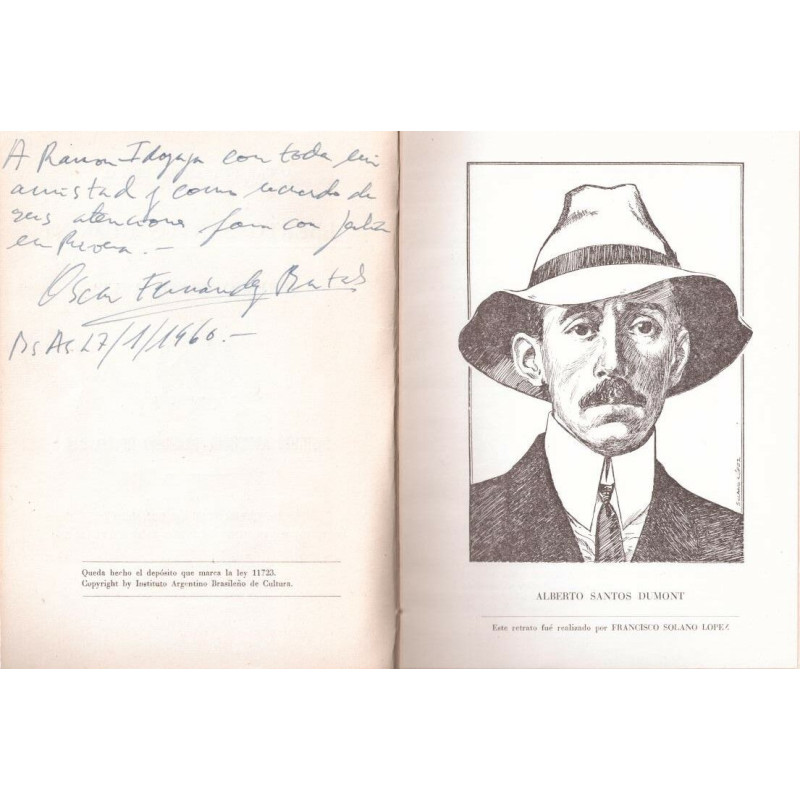 A Ramon Idoyaga con toda mi
amistad y como recuerdo de
sus atenciones para con
en Rivera.-
Oscar Fernández
Bs As. 27/1/1960.-
Queda hecho el depósito que marca la ley 11723.
Copyright by Instituto Argentino Brasileño de Cultura.
ALBERTO SANTOS DUMONT
Este retrato fué realizado por FRANCISCO SOLANO LOPEZ